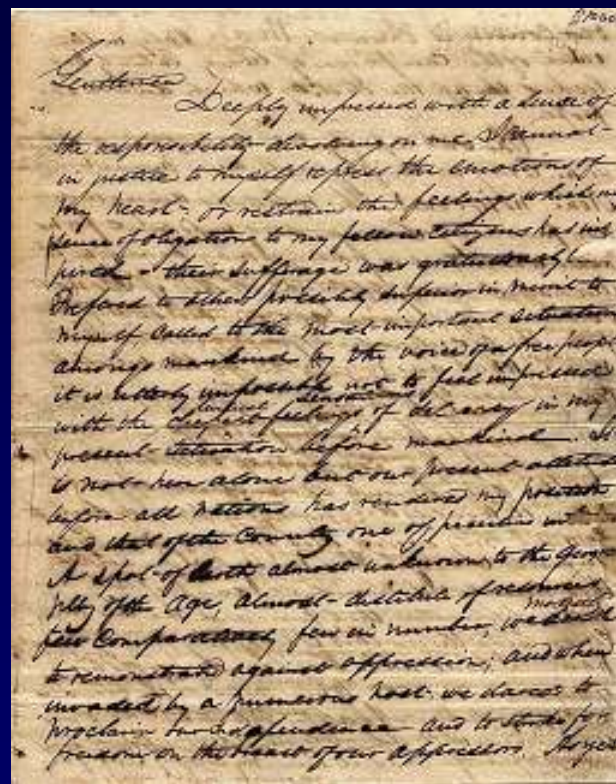 Gentlemen
Deeply impressed with a sense of
the responsibility devolving on me, I cannot
in justice to myself repress the emotions of
my heart - or restrain the feelings which my
sense of obligation to my fellow citizens has ins
pired - their suffrage was gratuitously
Prefered to others possibly superior in merit to
myself Called to the most important situation
amongs mankind by the voice of a free people
it is utterly impossible not to feel impressed
with the deepest feelings of delicacy in my
present situation before mankind. It
is not here alone but our present attitude
before all nations has rendered my position
and that of the Country one of peculiar in
A spot of Earth almost unknown to the Geogra
phy of the Age, almost destitute of resources
few Comparatively few in number, we
to remonstrate against oppression; and when
invaded by a numerous host we dared to
proclaim our independence and to strike for
freedom on the breast of our oppressors.